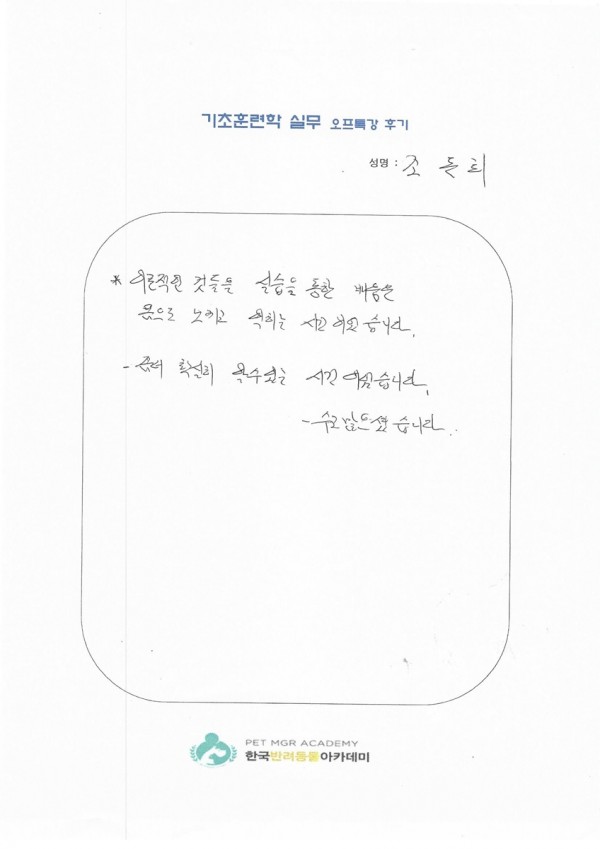 기초훈련학 실무 오프특강 후기
성명 : 조 돈 희
* 이론적인 것들을 실습을 통한 배움은
몸으로 느끼고 익히는 시간이었습니다.
- 좀더 확실히 알수있는 시간이었습니다.
- 수고많으셨습니다..
PET MGR ACADEMY
한국반려동물아카데미